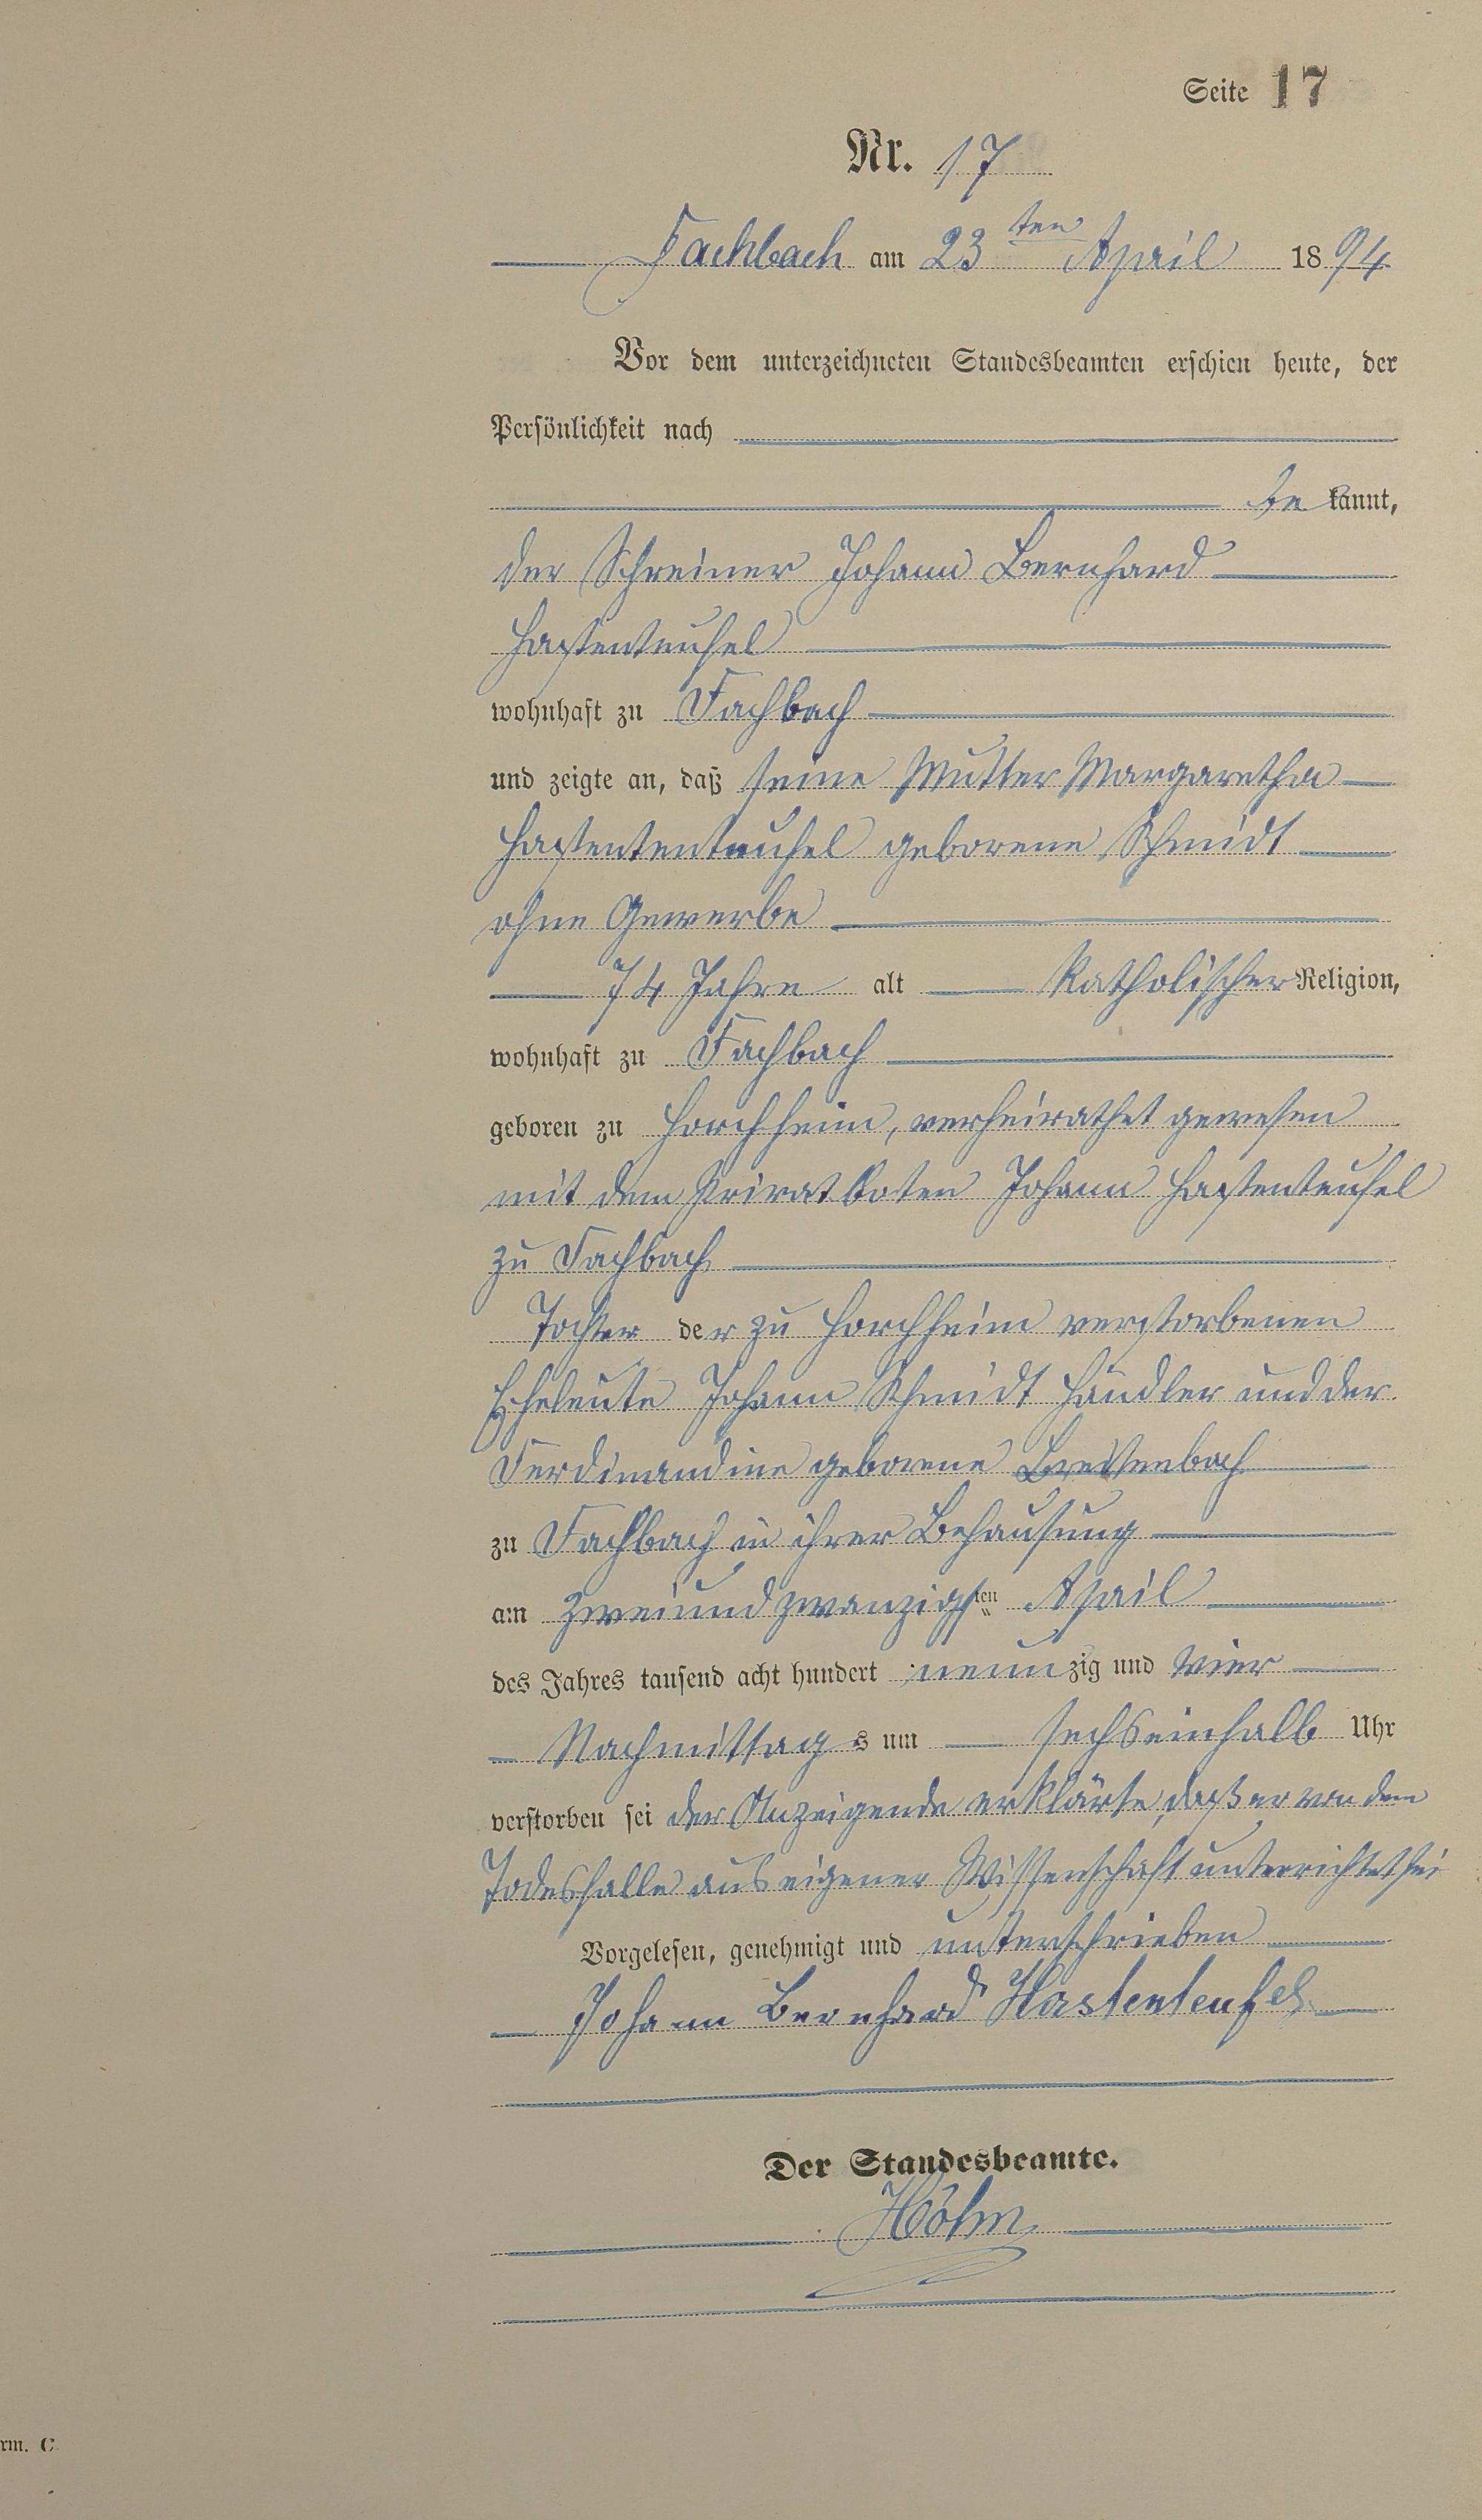 Seite 17
Nr. 17
Fachbach am 23ten April 1894
Vor dem unterzeichneten Standesbeamten erschien heute, der
Persönlichkeit nach
bekannt,
der Schreiner Johann Bernhard
Hastenteufel
wohnhaft zu Fachbach
und zeigte an, daß seine Mutter Margaretha
Hastententeufel geborene Schmidt
ohne Gewerbe
74 Jahre alt Katholischer Religion,
wohnhaft zu Fachbach
geboren zu Horchheim, verheirathet gewesen
mit dem Privatboten Johann Hastenteufel
zu Fachbach
Tochter der zu Horchheim verstorbenen
Eheleute Johann Schmidt Händler und der
Ferdinandine geborene Breitenbach
zu Fachbach in ihrer Behausung
am zweiundzwanzigsten April
des Jahres tausend acht hundert neunzig und vier
Nachmittags um sechseinhalb Uhr
verstorben sei der Anzeigende erklärte, daß er von dem
Todesfalle aus eigener Wissenschaft unterrichtet sei
Vorgelesen, genehmigt und unterschrieben
Johann Bernhard Hastenteufel
Der Standesbeamte.
Höhn
rm. C